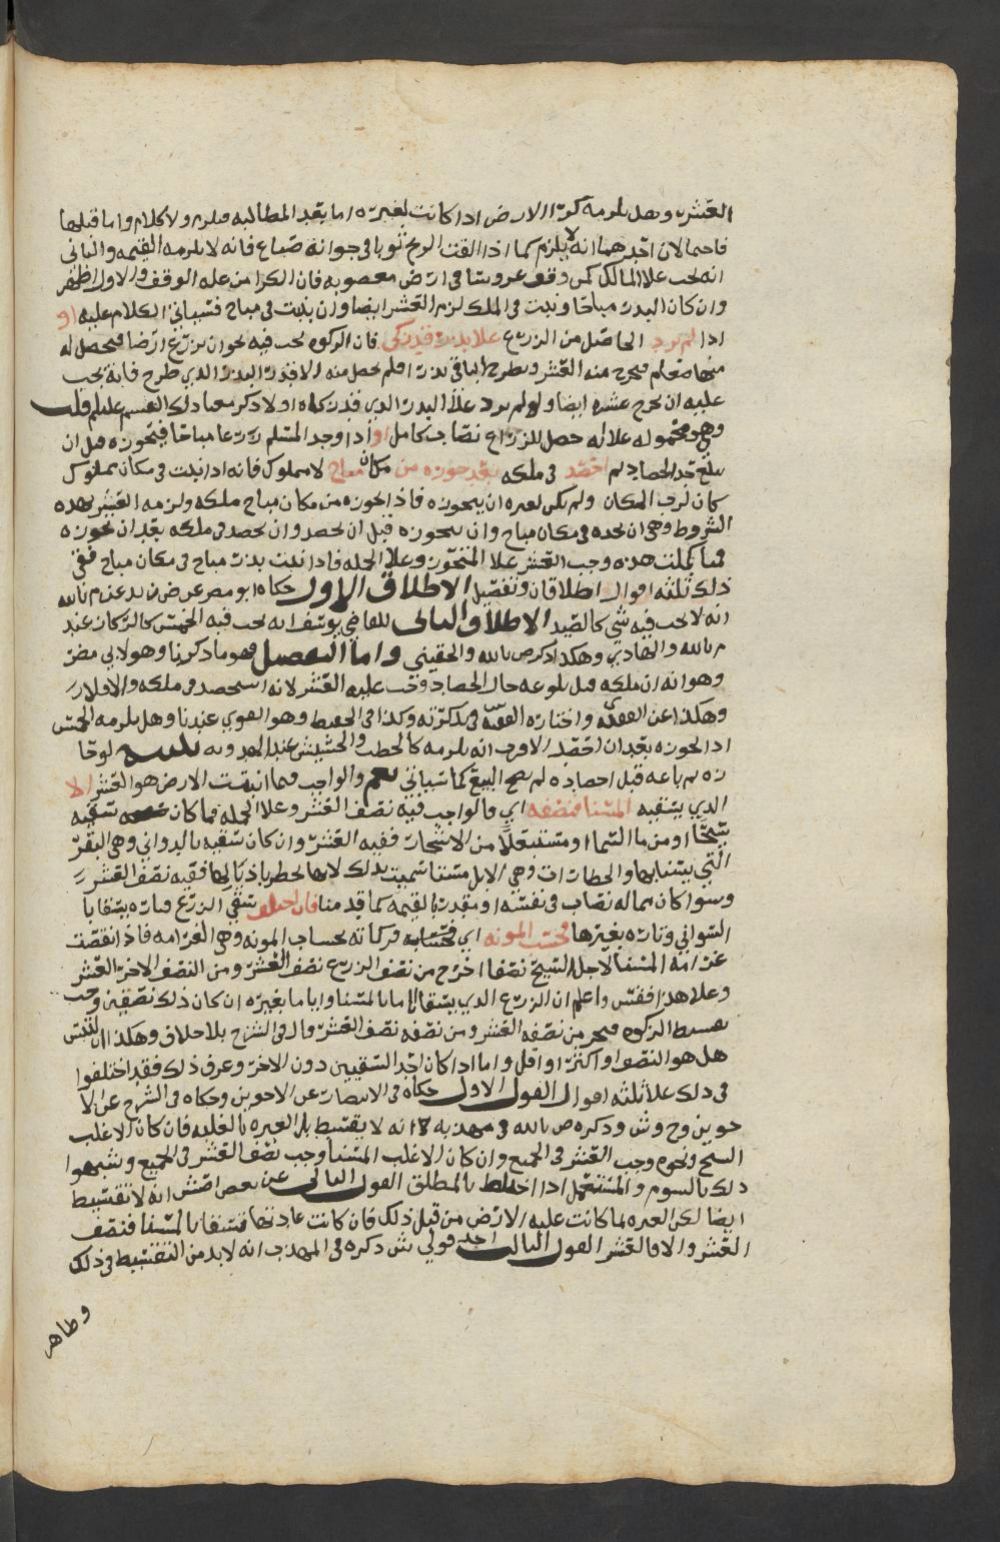 العشر وهل يلزمه كرا الارض اذا كانت لغيره اما بعد المطالبه فلزم ولا كلام واما قبلها
فاحتمالان احدهما انه لا يلزم كما اذا القت الريح ثوبا في جوانه صباع فانه لا يلزمه القيمه والثاني
انه يجب علا المالك كمن وقف عروسا في ارض مغصوبه فان الكرا من عله الوقف والاول اظهر
وان كان البذر مباحا ونبت في الملك لزم العشر ايضا وان نبت في مباح فسياتي الكلام عليه او
اذا لم يزد الحاصل من الزرع علا بذر قد زكى فان الزكوه تجب فيه نحو ان يزرع ارضا فيحصل له
منها فيخرج منه العشر ويطرح الباقي بذرا فلم يحصل منه الا قدر البذر الذي طرح فانه يجب
عليه ان يخرج عشره ايضا ولو لم يزد علا البذر الذي قد زكاه اولا ذكر معنا ذلك قلت
وهو محمول علا انه حصل للزراع نصاب كامل او اذا وجد المسلم زرعا مباحا فيحوزه قبل ان
يبلغ حد الحصاد ثم احصد في ملكه بعد حوزه من مكان مباح لا مملوك فانه اذا نبت في مكان مملوك
كان لرب المكان ولم يكن لغيره ان يحوزه فاذا حوزه من مكان مباح ملكه ولزمه العشر بهذه
الشروط وهي ان يجده في مكان مباح وان يحوزه قبل ان يحصد وان يحصد في ملكه بعد ان يحوزه
فمتا كملت هذه وجب العشر علا المتحوز وعلا الجمله فاذا نبت بذر مباح في مكان مباح ففي
ذلك ثلثه اقوال اطلاقان وتفصيل الاطلاق الاول حكاه ابو مضر عن ض زيد عن م بالله
انه لا يجب فيه شي كالصيد الاطلاق الثاني للقاضي يوسف انه يجب فيه الخمس كالركاز عند
م بالله والهادي وهكذا ذكر ص بالله والحقيني واما التفصيل فهو ما ذكرنا وهو لابي مضر
وهو انه ان ملكه قبل بلوغه حال الحصاد وجب عليه العشر لانه استحصد في ملكه والا فلا
وهكذا عن الفقيه واختاره الفقيه في تذكرته وكذا في الحفيظ وهو القوي عندنا وهل يلزمه الخمس
اذا حوزه بعد ان احصد الاقرب انه يلزمه كالحطب والحشيش عند الهدويه تنبيه لو حا
زه ثم باعه قبل احصاده لم يصح البيع كما سياتي نعم والواجب فيما انبتت الارض هو العشر الا
الذي يسقيه المسنا فنصفه اي فالواجب فيه نصف العشر وعلا الجمله فما كان سقيه
سيحا او من ما السما او مستبعلا من الاشجار ففيه العشر وان كان سقيه بالدواني وهي البقر
التي يسنا بها والخطارات وهي الابل مسنا سميت بذلك لانها تخطر باذنابها ففيه نصف العشر
وسوا كان مما له نصاب في نفسه او مقدر بالقيمه كما قدمنا فان اختلف سقي الزرع فتاره يسقا با
السواني وتاره بغيرها فحسب المونه اي فحسابه وزكاته بحساب المونه وهي الغرامه فاذا نقصت
غرامه المسنا لاجل السيح نصفا اخرج من نصف الزرع نصف العشر ومن النصف الاخر العشر
وعلا هذا فقس واعلم ان الزرع الذي يسقا اما بالمسنا واياما بغيره ان كان ذلك نصفين وجب
تقسيط الزكوه فيخرج من نصفه العشر ومن نصفه نصف العشر قال في الشرح بلا خلاف وهكذا ان التبس
هل هو النصف او اكثر او اقل واما اذا كان احد السقيين دون الاخر وعرف ذلك فقد اختلفوا
في ذلك علا ثلثه اقوال القول الاول حكاه في الانتصار عن الاخوين وحكاه في الشرح عن الا
خوين وح وش وذكره ص بالله في مهذبه انه لا يقسط بل العبره بالغلبه فان كان الاغلب
السيح ونحوه وجب العشر في الجميع وان كان الاغلب المسنا وجب نصف العشر في الجميع وشبهوا
ذلك بالسوم والمستعمل اذا اختلط بالمطلق القول الثاني عن بعض اصش انه لا تقسيط
ايضا لكن العبره بما كانت عليه الارض من قبل ذلك فان كانت عادتها تسقا بالمسنا فنصف
العشر والا فالعشر القول الثالث احد قولي ش ذكره في المهذب انه لا بد من التقسيط في ذلك
وظاهر